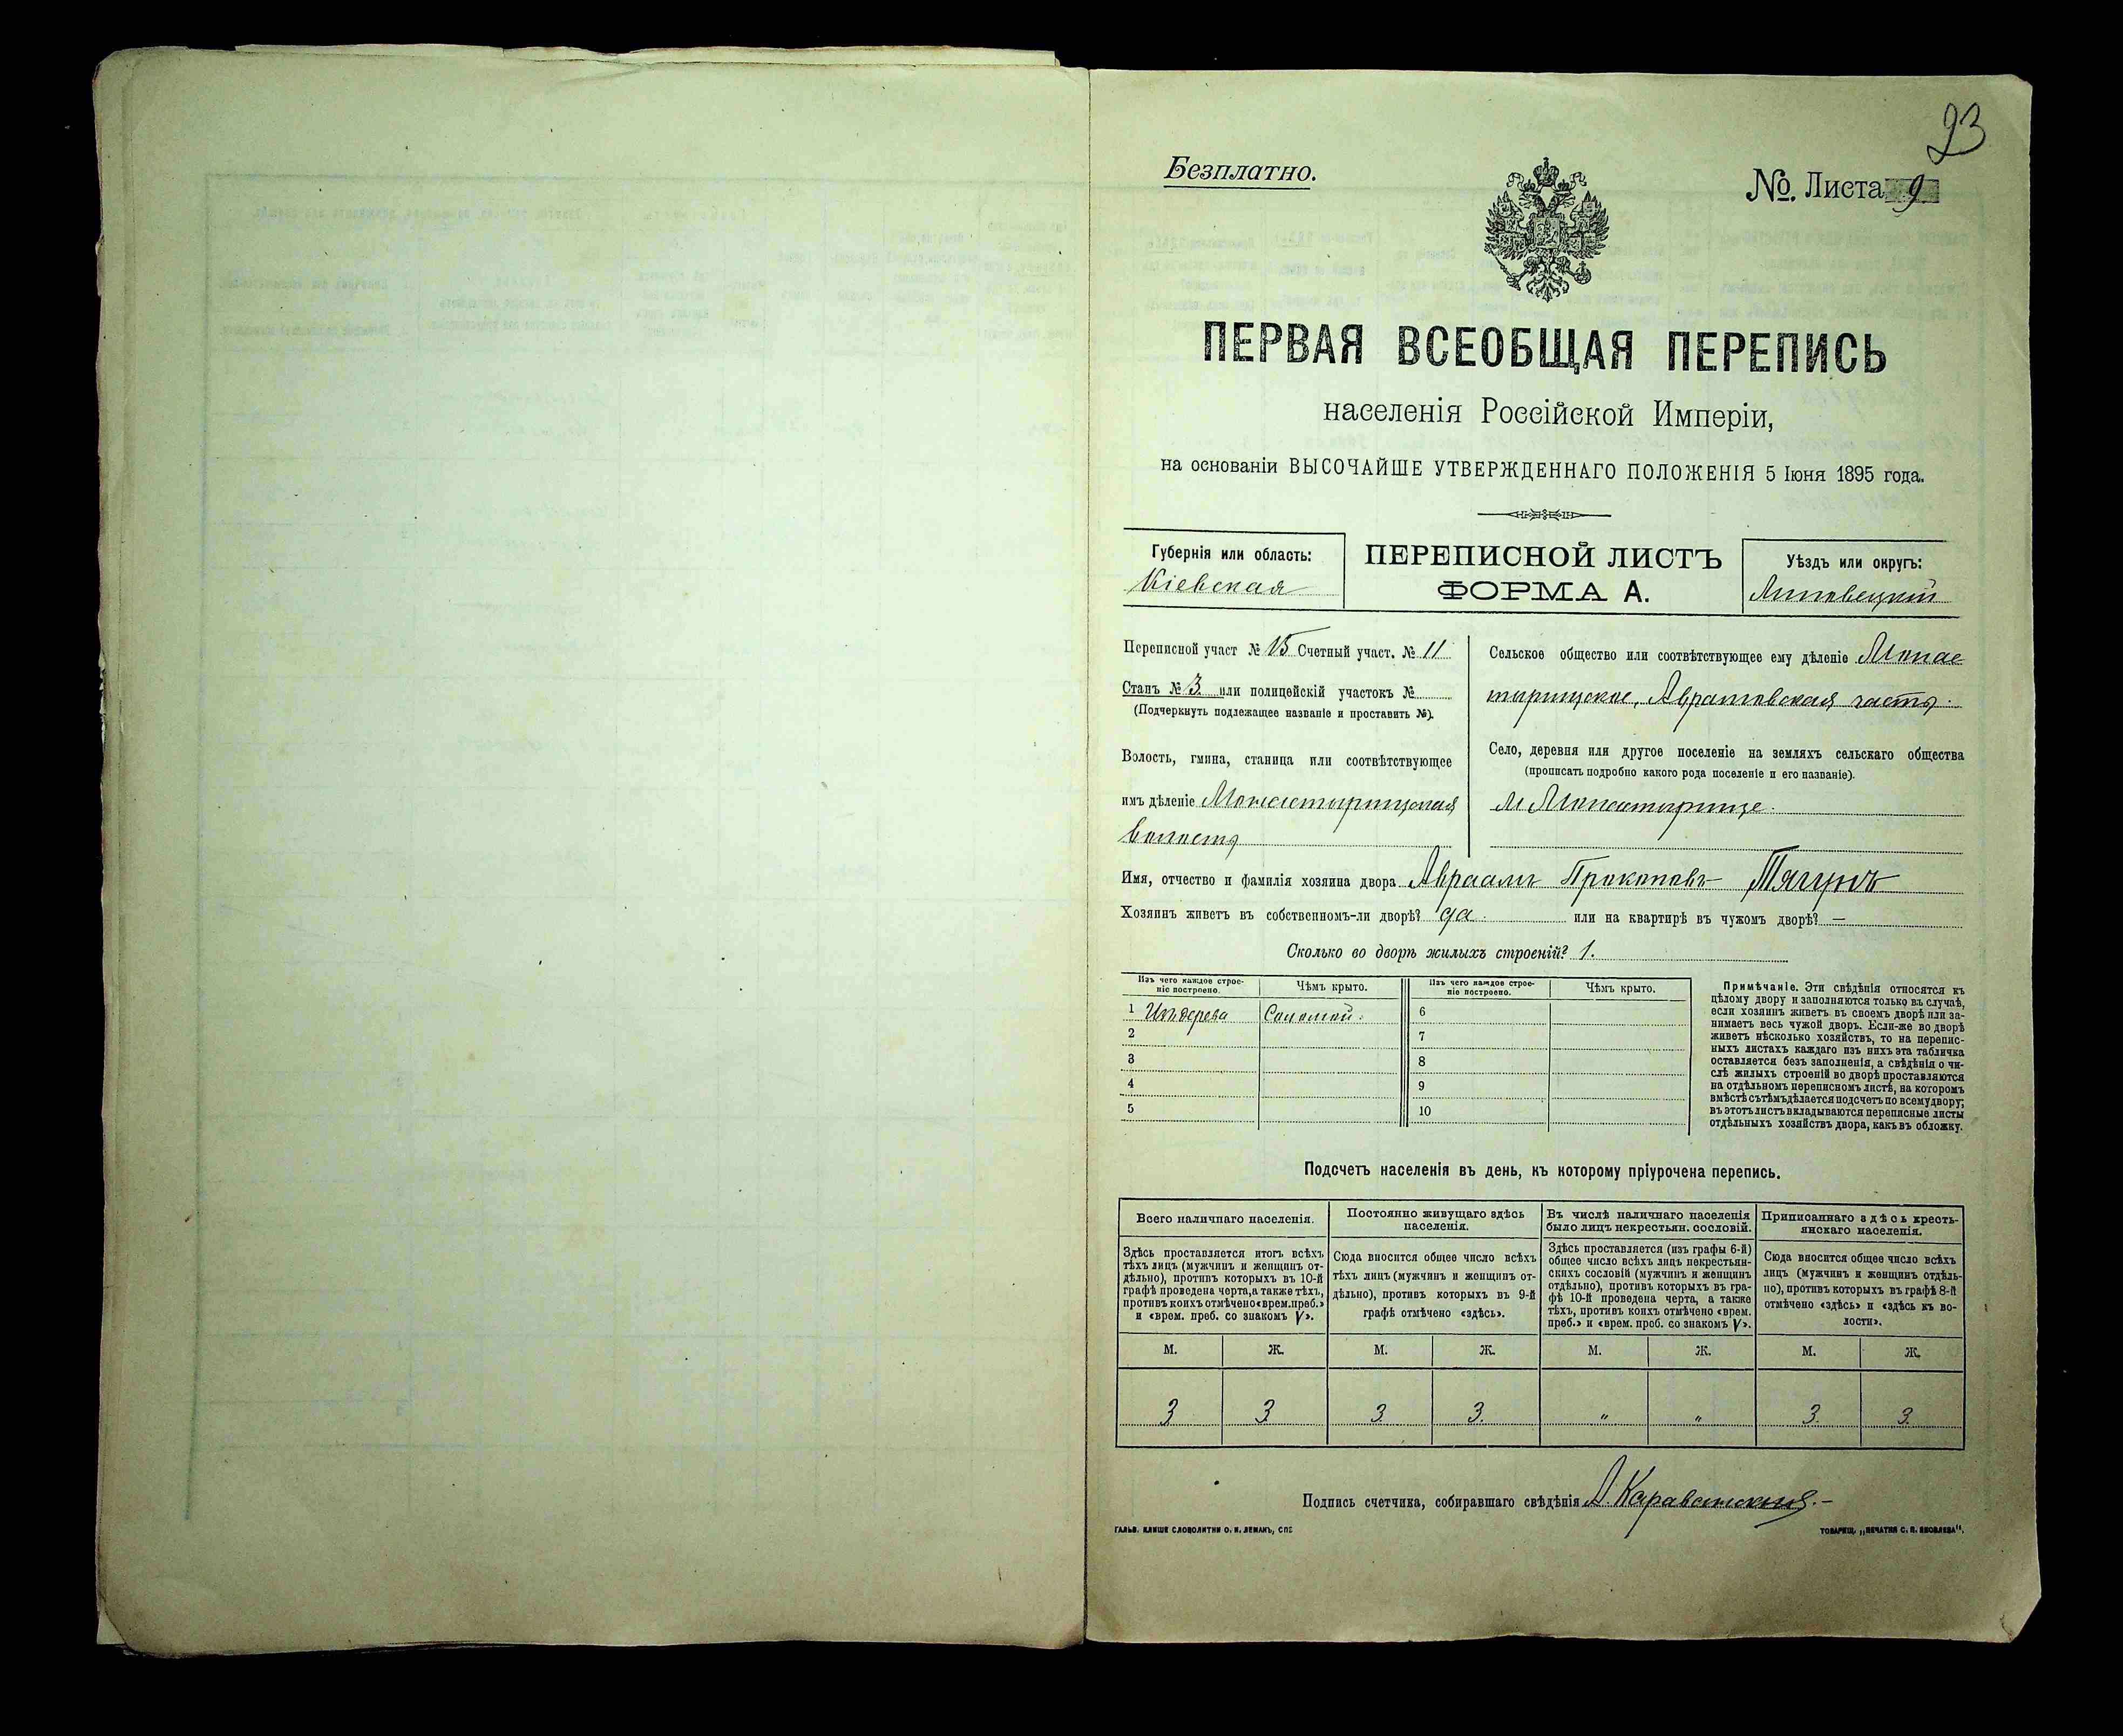 23
Безплатно.
№. Листа 9
ПЕРВАЯ ВСЕОБЩАЯ ПЕРЕПИСЬ
населенія Россійской Имперіи,
на основаніи ВЫСОЧАЙШЕ УТВЕРЖДЕННАГО ПОЛОЖЕНІЯ 5 Іюня 1895 года.
Губернія или область:
Кіевская
ПЕРЕПИСНОЙ ЛИСТЪ
ФОРМА А.
Уѣздъ или округъ:
Липовецкій
Переписной участ № 15 Счетный участ. № 11
Станъ № 3. или полицейскій участокъ №
(Подчеркнуть подлежащее названіе и проставить №).
Волость, гмина, станица или соотвѣтствующее
имъ дѣленіе Монастырищская
волость
Сельское общество или соотвѣтствующее ему дѣленіе Монас
тырищское, Авратовская часть.
Село, деревня или другое поселеніе на земляхъ сельскаго общества
(прописать подробно какого рода поселеніе и его названіе).
м Монастырище.
Имя, отчество и фамилія хозяина двора Авраамъ Прокоповъ Тягунъ
Хозяинъ живетъ въ собственномъ-ли дворѣ? да. или на квартирѣ въ чужомъ дворѣ? —
Сколько во дворѣ жилыхъ строеній? 1.
Изъ чего каждое строе-
ніе построено.
Чѣмъ крыто.
Изъ чего каждое строе-
ніе построено.
Чѣмъ крыто.
1 Изъ дерева Соломой.
2
3
4
5
6
7
8
9
10
Примѣчаніе. Эти свѣдѣнія относятся къ
цѣлому двору и заполняются только въ случаѣ,
если хозяинъ живетъ въ своемъ дворѣ или за-
нимаетъ весь чужой дворъ. Если-же во дворѣ
живетъ нѣсколько хозяйствъ, то на перепис-
ныхъ листахъ каждаго изъ нихъ эта табличка
оставляется безъ заполненія, а свѣдѣнія о чи-
слѣ жилыхъ строеній во дворѣ проставляются
на отдѣльномъ переписномъ листѣ, на которомъ
вмѣстѣ съ тѣмъ дѣлается подсчетъ по всему двору;
въ этотъ листъ вкладываются переписные листы
отдѣльныхъ хозяйствъ двора, какъ въ обложку.
Подсчетъ населенія въ день, къ которому пріурочена перепись.
Всего наличнаго населенія.
Здѣсь проставляется итогъ всѣхъ
тѣхъ лицъ (мужчинъ и женщинъ от-
дѣльно), противъ которыхъ въ 10-й
графѣ проведена черта, а также тѣхъ,
противъ коихъ отмѣчено «врем. преб.»
и «врем. преб. со знакомъ V».
М. Ж.
3 3
Постоянно живущаго здѣсь
населенія.
Сюда вносится общее число всѣхъ
тѣхъ лицъ (мужчинъ и женщинъ от-
дѣльно), противъ которыхъ въ 9-й
графѣ отмѣчено «здѣсь».
М. Ж.
3 3.
Въ числѣ наличнаго населенія
было лицъ некрестьян. сословій.
Здѣсь проставляется (изъ графы 6-й)
общее число всѣхъ лицъ некрестьян-
скихъ сословій (мужчинъ и женщинъ
отдѣльно), противъ которыхъ въ гра-
фѣ 10-й проведена черта, а также
тѣхъ, противъ коихъ отмѣчено «врем.
преб.» и «врем. преб. со знакомъ V».
М. Ж.
" "
Приписаннаго здѣсь кресть-
янскаго населенія.
Сюда вносится общее число всѣхъ
лицъ (мужчинъ и женщинъ отдѣль-
но), противъ которыхъ въ графѣ 8-й
отмѣчено «здѣсь» и «здѣсь къ во-
лости».
М. Ж.
3. 3.
Подпись счетчика, собиравшаго свѣдѣнія
ГАЛЬВ. КЛИШЕ СЛОВОЛИТНИ О. И. ЛЕМАНЪ, СПБ
ТОВАРИЩ. „ПЕЧАТНЯ С. П. ЯКОВЛЕВА“.